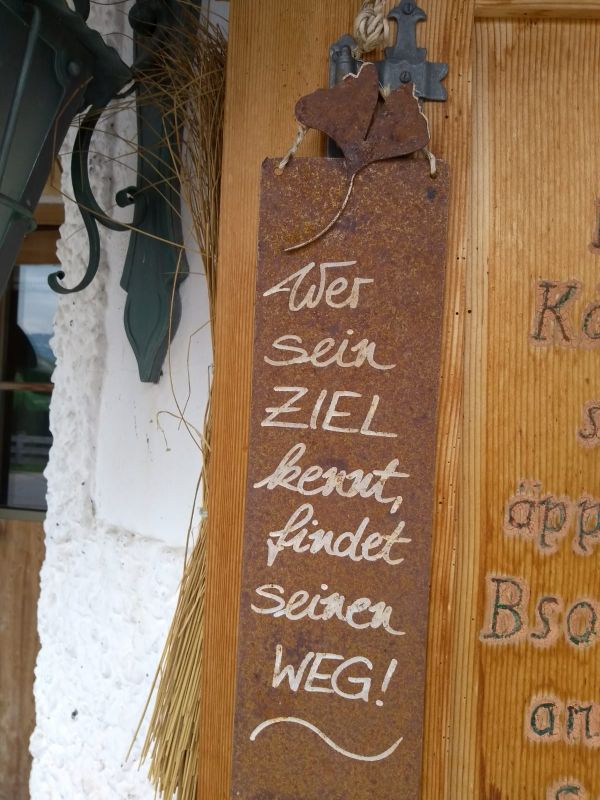 Wer
sein
ZIEL
kennt,
findet
seinen
WEG!
äpp
Bso
an